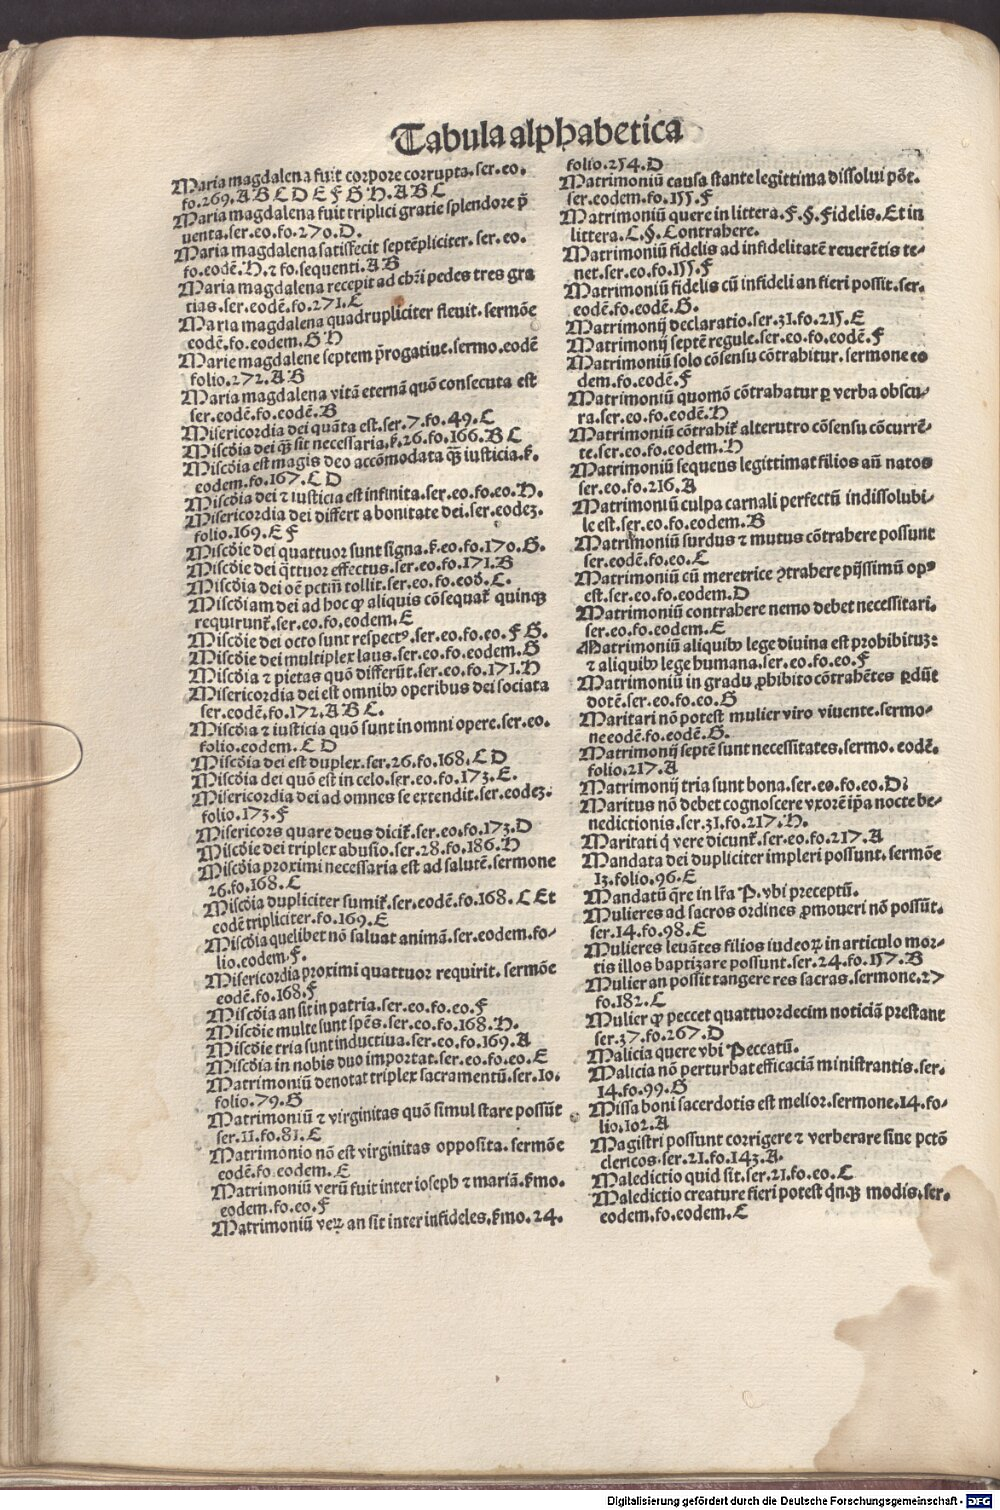 Tabula alphabetica
Maria magdalena fuit corpore corrupta.ser.eo.
fo.269.A B C D E F G H.A B C
Maria magdalena fuit triplici gratie splendore p̄
uenta.ser.eo.fo.270.D.
Maria magdalena satisfecit septēpliciter.ser.eo.
fo.eodē.H.⁊ fo.sequenti.A B
Maria magdalena recepit ad chři pedes tres gra
tias.ser.eodē.fo.271.C
Maria magdalena quadrupliciter fleuit.sermōe
eodē.fo.eodem.G H
Marie magdalene septem p̄rogatiue.sermo.eodē
folio.272.A B
Maria magdalena vitā eternā quō consecuta est
ser.eodē.fo.eodē.B
Misericordia dei quāta est.ser.7.fo.49.C
Miscd̄ia dei q̄ꝫ sit necessaria.ẜ.26.fo.166.B C
Miscd̄ia est magis deo accōmodata q̄ꝫ iusticia.ẜ.
eodem.fo.167.C D
Miscd̄ia dei ⁊ iusticia est infinita.ser.eo.fo.eo.H.
Misericordia dei differt a bonitate dei.ser.eodeꝫ.
folio.169.E F
Miscd̄ie dei quattuor sunt signa.ẜ.eo.fo.170.G.
Miscd̄ie dei q̄ttuor effectus.ser.eo.fo.171.B
Miscd̄ia dei oē pctm̄ tollit.ser.eo.fo.eod̄.C.
Miscd̄iam dei ad hoc ꝙ aliquis cōsequat̄ quinqꝫ
requirunt̄.ser.eo.fo.eodem.E
Miscd̄ie dei octo sunt respectꝰ.ser.eo.fo.eo.F G.
Miscd̄ie dei multiplex laus.ser.eo.fo.eodem.G
Miscd̄ia ⁊ pietas quō differūt.ser.eo.fo.171.H
Misericordia dei est omnibꝰ operibus dei sociata
ser.eodē.fo.172.A B C.
Miscd̄ia ⁊ iusticia quō sunt in omni opere.ser.eo.
folio.eodem.C D
Miscd̄ia dei est duplex.ser.26.fo.168.C D
Miscd̄ia dei quō est in celo.ser.eo.fo.173.E.
Misericordia dei ad omnes se extendit.ser.eodeꝫ.
folio.173.F
Misericors quare deus dicit̄.ser.eo.fo.173.D
Miscd̄ie dei triplex abusio.ser.28.fo.186.H
Miscd̄ia proximi necessaria est ad salutē.sermone
26.fo.168.C
Miscd̄ia dupliciter sumit̄.ser.eodē.fo.168.C Et
eodē tripliciter.fo.169.E
Miscd̄ia quelibet nō saluat animā.ser.eodem.fo-
lio.eodem.F.
Misericordia proximi quattuor requirit.sermōe
eodē.fo.168.F
Miscd̄ia an sit in patria.ser.eo.fo.eo.F
Miscd̄ie multe sunt spēs.ser.eo.fo.168.H.
Miscd̄ie tria sunt inductiua.ser.eo.fo.169.A
Miscd̄ia in nobis duo importat.ser.eo.fo.eo.E
Matrimoniū denotat triplex sacramentū.ser.10.
folio.79.G
Matrimoniū ⁊ virginitas quō simul stare possūt
ser.11.fo.81.E
Matrimonio nō est virginitas opposita.sermōe
eodē.fo.eodem.E
Matrimoniū verū fuit inter ioseph ⁊ mariā.ẜmo.
eodem.fo.eo.F
Matrimoniū veꝝ an sit inter infideles.ẜmo.24.
folio.254.D
Matrimoniū causa stante legittima dissolui pōt.
ser.eodem.fo.155.F
Matrimoniū quere in littera.F.§.Fidelis.Et in
littera.C.§.Contrahere.
Matrimoniū fidelis ad infidelitatē reuerētis te-
net.ser.eo.fo.155.F
Matrimoniū fidelis cū infideli an fieri possit.ser.
eodē.fo.eodē.G.
Matrimonij declaratio.ser.31.fo.215.E
Matrimonij septē regule.ser.eo.fo.eodē.F
Matrimoniū solo cōsensu cōtrahitur.sermone eo
dem.fo.eodē.F
Matrimoniū quomō cōtrahatur ꝑ verba obscu-
ra.ser.eo.fo.eodē.H
Matrimoniū cōtrahit̄ alterutro cōsensu cōcurrē-
te.ser.eo.fo.eodem.H
Matrimoniū sequens legittimat filios an̄ natos
ser.eo.fo.216.A
Matrimoniū culpa carnali perfectū indissolubi-
le est.ser.eo.fo.eodem.B
Matrimoniū surdus ⁊ mutus cōtrahere possunt
ser.eodē.fo.eo.C
Matrimoniū cū meretrice ꝯtrahere pijssimū opꝰ
est.ser.eo.fo.eodem.D
Matrimoniū contrahere nemo debet necessitari.
ser.eo.fo.eodem.E
Matrimoniū aliquibꝰ lege diuina est prohibituꝫ:
⁊ aliquibꝰ lege humana.ser.eo.fo.eo.F
Matrimoniū in gradu ꝓhibito cōtrahētes ꝑdūt
dotē.ser.eo.fo.eo.G
Maritari nō potest mulier viro viuente.sermo-
ne eodē.fo.eodē.G.
Matrimonij septē sunt necessitates.sermo.eodē.
folio.217.A
Matrimonij tria sunt bona.ser.eo.fo.eo.D.
Maritus nō debet cognoscere vxorē ip̄a nocte be-
nedictionis.ser.31.fo.217.H.
Maritati q̇ vere dicunt̄.ser.eo.fo.217.A
Mandata dei dupliciter impleri possunt.sermōe
13.folio.96.E
Mandatū q̄re in lr̄a P.vbi preceptū.
Mulieres ad sacros ordines ꝓmoueri nō possūt.
ser.14.fo.98.E
Mulieres leuātes filios iudeoꝝ in articulo mor-
tis illos baptizare possunt.ser.24.fo.157.B
Mulier an possit tangere res sacras.sermone.27
fo.182.C
Mulier ꝙ peccet quattuordecim noticiā prestant
ser.37.fo.267.D
Malicia quere vbi Peccatū.
Malicia nō perturbat efficaciā ministrantis.ser.
14.fo.99.G
Missa boni sacerdotis est melior.sermone.14.fo-
lio.102.A
Magistri possunt corrigere ⁊ verberare sine pctō
clericos.ser.21.fo.143.A.
Maledictio quid sit.ser.21.fo.eo.C
Maledictio creature fieri potest q̇nqꝫ modis.ser.
eodem.fo.eodem.C
Digitalisierung gefördert durch die Deutsche Forschungsgemeinschaft - DFG